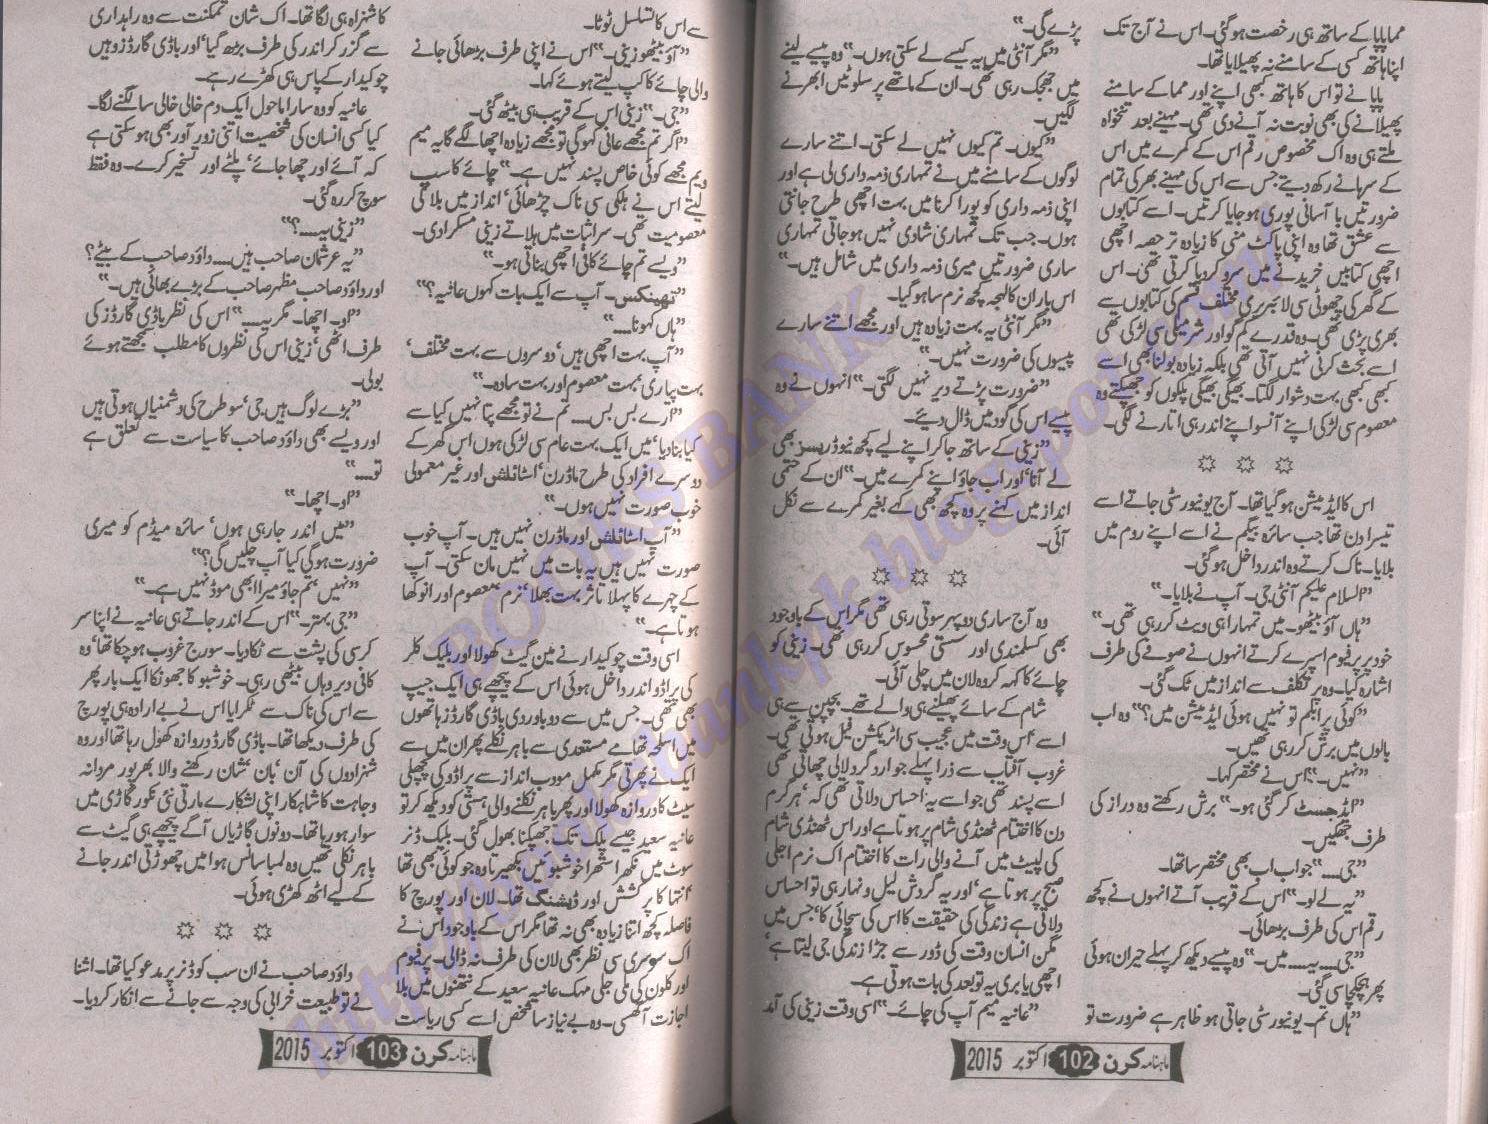 مما پاپا کے ساتھ ہی رخصت ہو گئی۔ اس نے آج تک
اپنا ہاتھ کسی کے سامنے نہ پھیلایا تھا۔
پاپا نے تو اس کا ہاتھ کبھی اپنے اور مما کے سامنے
پھیلانے کی بھی نوبت نہ آنے دی تھی۔ مہینے بعد تنخواہ
ملتے ہی وہ اک مخصوص رقم اس کے کمرے میں اس
کے سرہانے رکھ دیتے جس سے اس کی مہینے بھر کی تمام
ضرورتیں با آسانی پوری ہو جایا کرتیں۔ اسے کتابوں
سے عشق تھا وہ اپنی پاکٹ منی کا زیادہ تر حصہ اچھی
اچھی کتابیں خریدنے میں سرو کر دیا کرتی تھی۔ اس
کے گھر کی چھوٹی سی لائبریری مختلف قسم کی کتابوں سے
بھری پڑی تھی۔ وہ قدرے کم گو اور شرمیلی سی لڑکی تھی
اسے بحث کرنی نہیں آتی تھی بلکہ زیادہ بولنا بھی اسے
کبھی کبھی بہت دشوار لگتا۔ بھیگی بھیگی پلکوں کو جھپکتے وہ
معصوم سی لڑکی اپنے آنسو اپنے اندر ہی اتارنے لگی۔
☼ ☼ ☼
اس کا ایڈمیشن ہو گیا تھا۔ آج یونیورسٹی جاتے اسے
تیسرا دن تھا جب سائرہ بیگم نے اسے اپنے روم میں
بلایا۔ ناک کرتے وہ اندر داخل ہو گئی۔
”السلام علیکم آنٹی جی۔ آپ نے بلایا۔“
”ہاں آؤ بیٹھو۔ میں تمہارا ہی ویٹ کر رہی تھی۔“
خود پر پرفیوم اسپرے کرتے انہوں نے صوفے کی طرف
اشارہ کیا۔ وہ پر تکلف سے انداز میں ٹک گئی۔
”کوئی پرابلم تو نہیں ہوئی ایڈمیشن میں؟“ وہ اب
بالوں میں برش کر رہی تھیں۔
”نہیں۔“ اس نے مختصر کہا۔
”ایڈجسٹ کر گئی ہو۔“ برش رکھتے وہ دراز کی
طرف جھکیں۔
”جی۔۔۔“ جواب اب بھی مختصر سا تھا۔
”یہ لے لو۔“ اس کے قریب آتے انہوں نے کچھ
رقم اس کی طرف بڑھائی۔
”جی۔۔۔ یہ۔۔۔ میں۔“ وہ پیسے دیکھ کر پہلے حیران ہوئی
پھر ہچکچا سی گئی۔
”ہاں تم۔ یونیورسٹی جاتی ہو ظاہر ہے ضرورت تو
پڑے گی۔“
”مگر آنٹی میں یہ کیسے لے سکتی ہوں۔“ وہ پیسے لینے
میں جھجک رہی تھی۔ ان کے ماتھے پر سلوٹیں ابھرنے
لگیں۔
”کیوں۔ تم کیوں نہیں لے سکتی۔ اتنے سارے
لوگوں کے سامنے میں نے تمہاری ذمہ داری لی ہے اور
اپنی ذمہ داری کو پورا کرنا میں بہت اچھی طرح جانتی
ہوں۔ جب تک تمہاری شادی نہیں ہو جاتی تمہاری
ساری ضرورتیں میری ذمہ داری میں شامل ہیں۔“
اس بار ان کا لہجہ کچھ نرم سا ہو گیا۔
”مگر آنٹی یہ بہت زیادہ ہیں اور مجھے اتنے سارے
پیسوں کی ضرورت نہیں۔“
”ضرورت پڑتے دیر نہیں لگتی۔“ انہوں نے وہ
پیسے اس کی گود میں ڈال دیے۔
”زینی کے ساتھ جا کر اپنے لیے کچھ نیو ڈریسز بھی
لے آنا اور اب جاؤ اپنے کمرے میں۔“ ان کے حتمی
انداز میں کہنے پر وہ کچھ بھی کہے بغیر کمرے سے نکل
آئی۔
☼ ☼ ☼
وہ آج ساری دوپہر سوتی رہی تھی مگر اس کے باوجود
بھی کسلمندی اور سستی محسوس کر رہی تھی۔ زینی کو
چائے کا کہہ کر وہ لان میں چلی آئی۔
شام کے سائے پھیلنے ہی والے تھے۔ بچپن سے ہی
اسے اس وقت میں عجیب سی اٹریکشن فیل ہوتی تھی۔
غروب آفتاب سے ذرا پہلے جو ارد گرد لالی چھاتی تھی
اسے پسند تھی جو اسے یہ احساس دلاتی تھی کہ ’ہر گرم
دن کا اختتام ٹھنڈی شام پر ہوتا ہے اور اس ٹھنڈی شام
کی لپیٹ میں آنے والی رات کا اختتام اک نرم اجلی
صبح پر ہوتا ہے‘ اور یہ گردش لیل و نہار ہی تو احساس
دلاتی ہے زندگی کی حقیقت کا اس کی سچائی کا‘ جس میں
مگن انسان وقت کی ڈور سے جڑا زندگی جی لیتا ہے‘
اچھی یا بری یہ تو بعد کی بات ہوتی ہے۔
”عانیہ میم آپ کی چائے۔“ اسی وقت زینی کی آمد
ماہنامہ کرن 102 اکتوبر 2015
سے اس کا تسلسل ٹوٹا۔
”آؤ بیٹھو زینی۔“ اس نے اپنی طرف بڑھائی جانے
والی چائے کا کپ لیتے ہوئے کہا۔
”جی۔“ زینی اس کے قریب ہی بیٹھ گئی۔
”اگر تم مجھے عانی کہو گی تو مجھے زیادہ اچھا لگے گا یہ میم
ویم مجھے کوئی خاص پسند نہیں ہے۔“ چائے کا سپ
لیتے اس نے ہلکی سی ناک چڑھائی‘ انداز میں بلا کی
معصومیت تھی۔ سر اثبات میں ہلاتے زینی مسکرا دی۔
”ویسے تم چائے کافی اچھی بناتی ہو۔“
”تھینکس۔ آپ سے ایک بات کہوں عانیہ؟“
”ہاں کہو نا۔۔۔“
”آپ بہت اچھی ہیں‘ دوسروں سے بہت مختلف‘
بہت پیاری‘ بہت معصوم اور بہت سادہ۔“
”ارے بس بس۔۔۔ تم نے تو مجھے پتا نہیں کیا سے
کیا بنا دیا‘ میں ایک بہت عام سی لڑکی ہوں اس گھر کے
دوسرے افراد کی طرح ماڈرن‘ اسٹائلش اور غیر معمولی
خوب صورت نہیں ہوں۔“
”آپ اسٹائلش اور ماڈرن نہیں ہیں۔ آپ خوب
صورت نہیں ہیں یہ بات میں نہیں مان سکتی۔ آپ
کے چہرے کا پہلا تاثر بہت بھلا‘ نرم‘ معصوم اور انوکھا
ہوتا ہے۔“
اسی وقت چوکیدار نے مین گیٹ کھولا اور بلیک کلر
کی پراڈو اندر داخل ہوئی اس کے پیچھے ہی ایک جیپ
بھی تھی۔ جس میں سے دو باوردی باڈی گارڈز ہاتھوں
میں اسلحہ تھامے مستعدی سے باہر نکلے پھر ان میں سے
ایک نے پھرتی مگر مکمل مودب انداز سے پراڈو کی پچھلی
سیٹ کا دروازہ کھولا اور پھر باہر نکلنے والی ہستی کو دیکھ کر تو
عانیہ سعید جیسے پلک تک جھپکنا بھول گئی۔ بلیک ڈنر
سوٹ میں نکھرا ستھرا خوشبوئیں بکھیرتا وہ جو کوئی بھی تھا
انتہا کا پر کشش اور ڈیشنگ تھا۔ لان اور پورچ کا
فاصلہ کچھ اتنا زیادہ بھی نہ تھا مگر اس کے باوجود اس نے
اک سرسری سی نظر بھی لان کی طرف نہ ڈالی۔ پرفیوم
اور کلون کی ملی جلی مہک عانیہ سعید کے نتھنوں میں بلا
اجازت آ گھسی۔ وہ بے نیاز سا شخص اسے کسی ریاست
کا شنراہ ہی لگا تھا۔ اک شان تمکنت سے وہ راہداری
سے گزر کر اندر کی طرف بڑھ گیا‘ اور باڈی گارڈز وہیں
چوکیدار کے پاس ہی کھڑے رہے۔
عانیہ کو وہ سارا ماحول ایک دم خالی خالی سا لگنے لگا۔
کیا کسی انسان کی شخصیت اتنی زور آور بھی ہو سکتی ہے
کہ آئے اور چھا جائے‘ پلٹے اور تسخیر کرے۔ وہ فقط
سوچ کر رہ گئی۔
”زینی یہ۔۔۔؟“
”یہ عرشمان صاحب ہیں۔۔۔ داؤد صاحب کے بیٹے؟
اور داؤد صاحب مظہر صاحب کے بڑے بھائی ہیں۔“
”او۔ اچھا۔ مگر یہ۔۔۔“ اس کی نظر باڈی گارڈز کی
طرف اٹھی‘ زینی اس کی نظروں کا مطلب سمجھتے ہوئے
بولی۔
”بڑے لوگ ہیں جی‘ سو طرح کی دشمنیاں ہوتی ہیں
اور ویسے بھی داؤد صاحب کا سیاست سے تعلق ہے
تو۔۔۔“
”او۔ اچھا۔“
”میں اندر جا رہی ہوں‘ سائرہ میڈم کو میری
ضرورت ہو گی کیا آپ چلیں گی؟“
”نہیں‘ تم جاؤ میرا ابھی موڈ نہیں ہے۔“
”جی بہتر۔“ اس کے اندر جاتے ہی عانیہ نے اپنا سر
کرسی کی پشت سے ٹکا دیا۔ سورج غروب ہو چکا تھا‘ وہ
کافی دیر وہاں بیٹھی رہی۔ خوشبو کا جھونکا ایک بار پھر
سے اس کی ناک سے ٹکرایا اس نے بے ارادہ ہی پورچ
کی طرف دیکھا تھا۔ باڈی گارڈ دروازہ کھول رہا تھا اور وہ
شہزادوں کی آن‘ بان‘ شان رکھنے والا بھرپور مردانہ
وجاہت کا شاہکار اپنی لشکارے مارتی نئی نکور گاڑی میں
سوار ہو رہا تھا۔ دونوں گاڑیاں آگے پیچھے ہی گیٹ سے
باہر نکلی تھیں وہ لمبا سانس ہوا میں چھوڑتی اندر جانے
کے لیے اٹھ کھڑی ہوئی۔
☼ ☼ ☼
داؤد صاحب نے ان سب کو ڈنر پر مدعو کیا تھا۔ اشنا
نے تو طبیعت خرابی کی وجہ سے جانے سے انکار کر دیا۔
ماہنامہ کرن 103 اکتوبر 2015
BOOKS BANK
http://booksbankpk.blogspot.com/